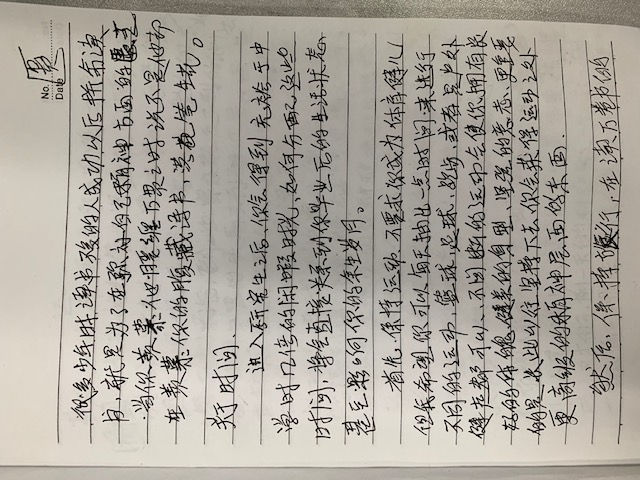 No.
Date
很多少年时读书不多的人成功以后拼命读
书，就是为了在弥补自己精神方面的
当你羡慕他腰缠万贯之时说不定他却
在羡慕你的腹藏诗书，洪范笔生花。
关于时间.
进入研究生之后，你会得到充裕于中
学时几倍的闲暇时光，如何分配这些
时间，将会直接关系到你毕业后的生活状态，
甚至影响你的余生岁月。
首先，保持运动，不要求你成为体育健儿
但我希望你可以每天抽出一点时间来进行
不同的运动，篮球，足球，跑步，或者是户外
健走都可以、不间断的运动会使你拥有良
好的体魄，健美的身型、坚强的意志、更重要
的是长此以往坚持下去你会获得运动之外
更高级的精神层面的东西.
然后、保持旅行，在读万卷书的